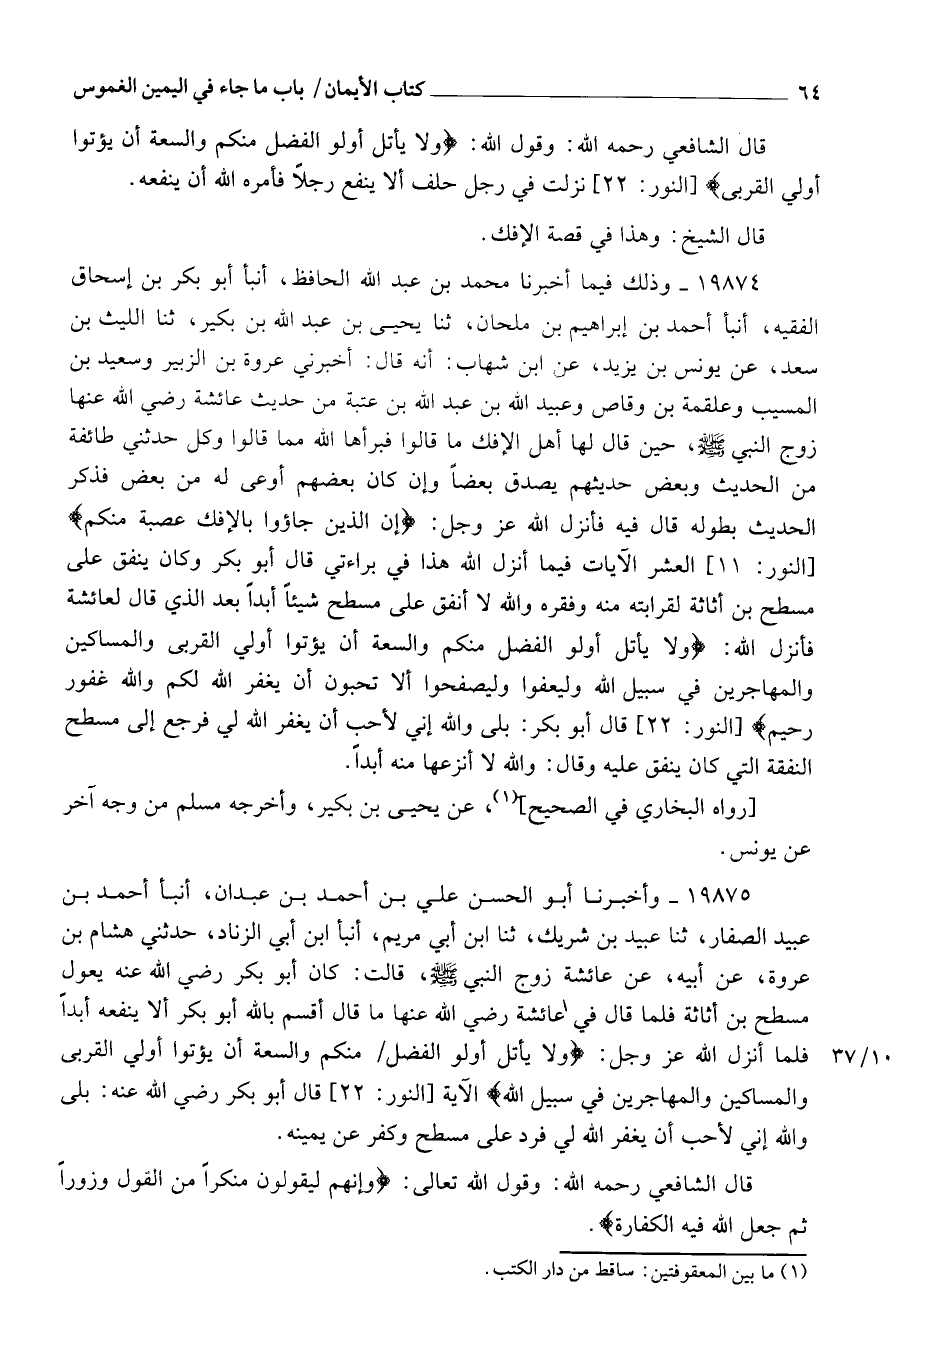 ٦٤ ــــــــــــــــ كتاب الأيمان/ باب ما جاء في اليمين الغموس
قال الشافعي رحمه الله: وقول الله: ﴿ولا يأتل أولو الفضل منكم والسعة أن يؤتوا
أولي القربى﴾ [النور: ٢٢] نزلت في رجل حلف ألا ينفع رجلاً فأمره الله أن ينفعه.
قال الشيخ: وهذا في قصة الإفك.
١٩٨٧٤ ـ وذلك فيما أخبرنا محمد بن عبد الله الحافظ، أنبأ أبو بكر بن إسحاق
الفقيه، أنبأ أحمد بن إبراهيم بن ملحان، ثنا يحيى بن عبد الله بن بكير، ثنا الليث بن
سعد، عن يونس بن يزيد، عن ابن شهاب: أنه قال: أخبرني عروة بن الزبير وسعيد بن
المسيب وعلقمة بن وقاص وعبيد الله بن عبد الله بن عتبة من حديث عائشة رضي الله عنها
زوج النبي ﷺ، حين قال لها أهل الإفك ما قالوا فبرأها الله مما قالوا وكل حدثني طائفة
من الحديث وبعض حديثهم يصدق بعضاً وإن كان بعضهم أوعى له من بعض فذكر
الحديث بطوله قال فيه فأنزل الله عز وجل: ﴿إن الذين جاؤوا بالإفك عصبة منكم﴾
[النور: ١١] العشر الآيات فيما أنزل الله هذا في براءتي قال أبو بكر وكان ينفق على
مسطح بن أثاثة لقرابته منه وفقره والله لا أنفق على مسطح شيئاً أبداً بعد الذي قال لعائشة
فأنزل الله: ﴿ولا يأتل أولو الفضل منكم والسعة أن يؤتوا أولي القربى والمساكين
والمهاجرين في سبيل الله وليعفوا وليصفحوا ألا تحبون أن يغفر الله لكم والله غفور
رحيم﴾ [النور: ٢٢] قال أبو بكر: بلى والله إني لأحب أن يغفر الله لي فرجع إلى مسطح
النفقة التي كان ينفق عليه وقال: والله لا أنزعها منه أبداً.
[رواه البخاري في الصحيح](١)، عن يحيى بن بكير، وأخرجه مسلم من وجه آخر
عن يونس.
١٩٨٧٥ ـ وأخبرنا أبو الحسن علي بن أحمد بن عبدان، أنبأ أحمد بن
عبيد الصفار، ثنا عبيد بن شريك، ثنا ابن أبي مريم، أنبأ ابن أبي الزناد، حدثني هشام بن
عروة، عن أبيه، عن عائشة زوج النبي ﷺ، قالت: كان أبو بكر رضي الله عنه يعول
مسطح بن أثاثة فلما قال في عائشة رضي الله عنها ما قال أقسم بالله أبو بكر ألا ينفعه أبداً
٣٧/١٠ فلما أنزل الله عز وجل: ﴿ولا يأتل أولو الفضل/ منكم والسعة أن يؤتوا أولي القربى
والمساكين والمهاجرين في سبيل الله﴾ الآية [النور: ٢٢] قال أبو بكر رضي الله عنه: بلى
والله إني لأحب أن يغفر الله لي فرد على مسطح وكفر عن يمينه.
قال الشافعي رحمه الله: وقول الله تعالى: ﴿وإنهم ليقولون منكراً من القول وزوراً
ثم جعل الله فيه الكفارة﴾.
(١) ما بين المعقوفتين: ساقط من دار الكتب.